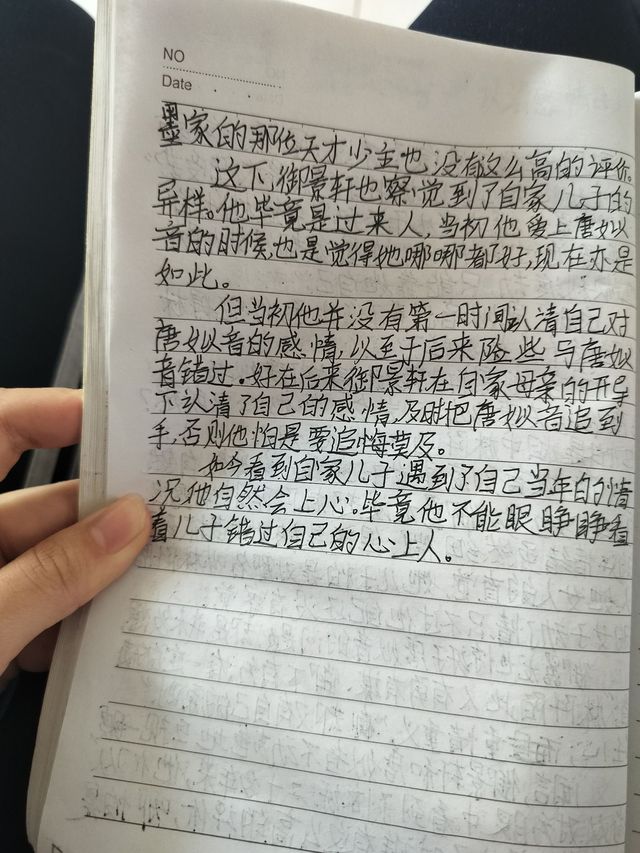 NO
Date
墨家的那位天才少主也没有这么高的评价。
这下,御景轩也察觉到了自家儿子的
异样。他毕竟是过来人,当初他爱上唐姒
音的时候,也是觉得她哪哪都好,现在亦是
如此。
但当初他并没有第一时间认清自己对
唐姒音的感情,以至于后来险些与唐姒
音错过。好在后来御景轩在自家母亲的开导
下认清了自己的感情,及时把唐姒音追到
手,否则他怕是要追悔莫及。
如今看到自家儿子遇到了自己当年的情
况他自然会上心。毕竟他不能眼睁睁看
着儿子错过自己的心上人。